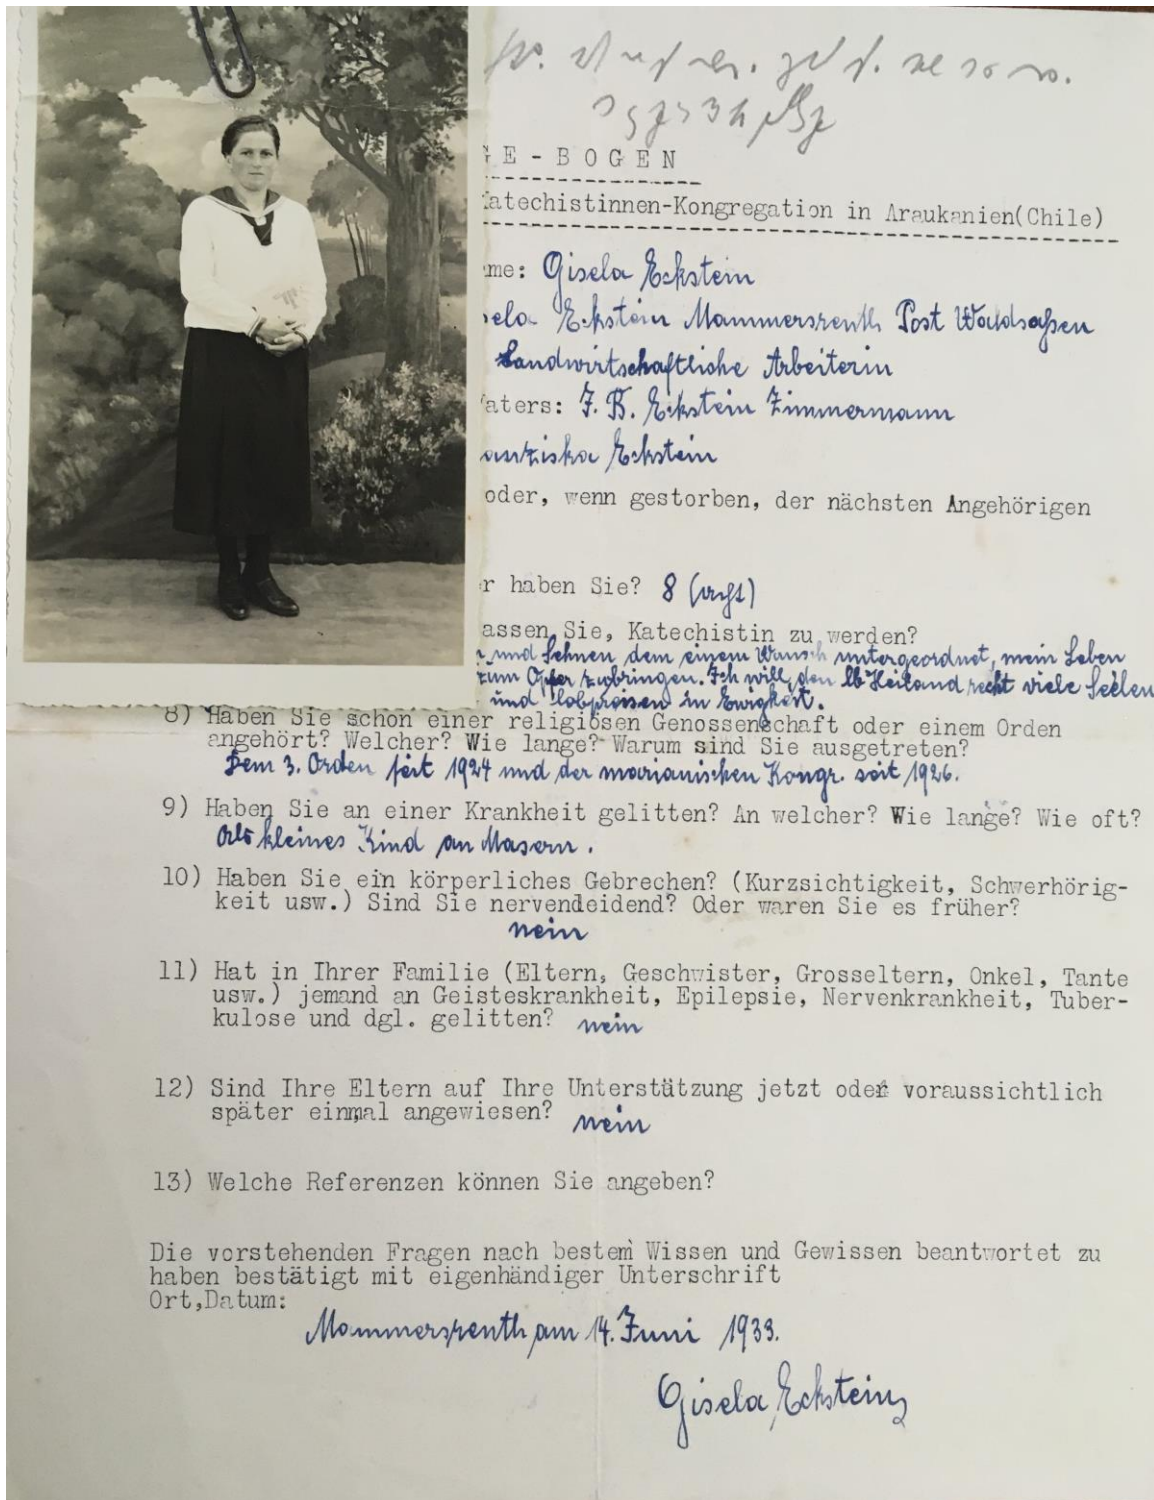 GE-BOGEN
Katechistinnen-Kongregation in Araukanien(Chile)
me: Gisela Eckstein
ela Eckstein Mammersreuth Post Waldsaßen
Landwirtschaftliche Arbeiterin
aters: J. B. Eckstein Zimmermann
anziska Eckstein
oder, wenn gestorben, der nächsten Angehörigen
r haben Sie? 8 (acht)
assen Sie, Katechistin zu werden?
und Sehnen dem einem Wunsch untergeordnet, mein Leben
zum Opfer zu bringen. Ich will, den lb Heiland recht viele Seelen
und lobpreisen in Ewigkeit.
8) Haben Sie schon einer religiösen Genossenschaft oder einem Orden
angehört? Welcher? Wie lange? Warum sind Sie ausgetreten?
Dem 3. Orden seit 1924 und der marianischen Kongr. seit 1926.
9) Haben Sie an einer Krankheit gelitten? An welcher? Wie lange? Wie oft?
Als kleines Kind an Masern.
10) Haben Sie ein körperliches Gebrechen? (Kurzsichtigkeit, Schwerhörig-
keit usw.) Sind Sie nervendeidend? Oder waren Sie es früher?
nein
11) Hat in Ihrer Familie (Eltern, Geschwister, Grosseltern, Onkel, Tante
usw.) jemand an Geisteskrankheit, Epilepsie, Nervenkrankheit, Tuber-
kulose und dgl. gelitten? nein
12) Sind Ihre Eltern auf Ihre Unterstützung jetzt oder voraussichtlich
später einmal angewiesen? nein
13) Welche Referenzen können Sie angeben?
Die vorstehenden Fragen nach bestem Wissen und Gewissen beantwortet zu
haben bestätigt mit eigenhändiger Unterschrift
Ort,Datum:
Mammersreuth am 14. Juni 1933.
Gisela Eckstein